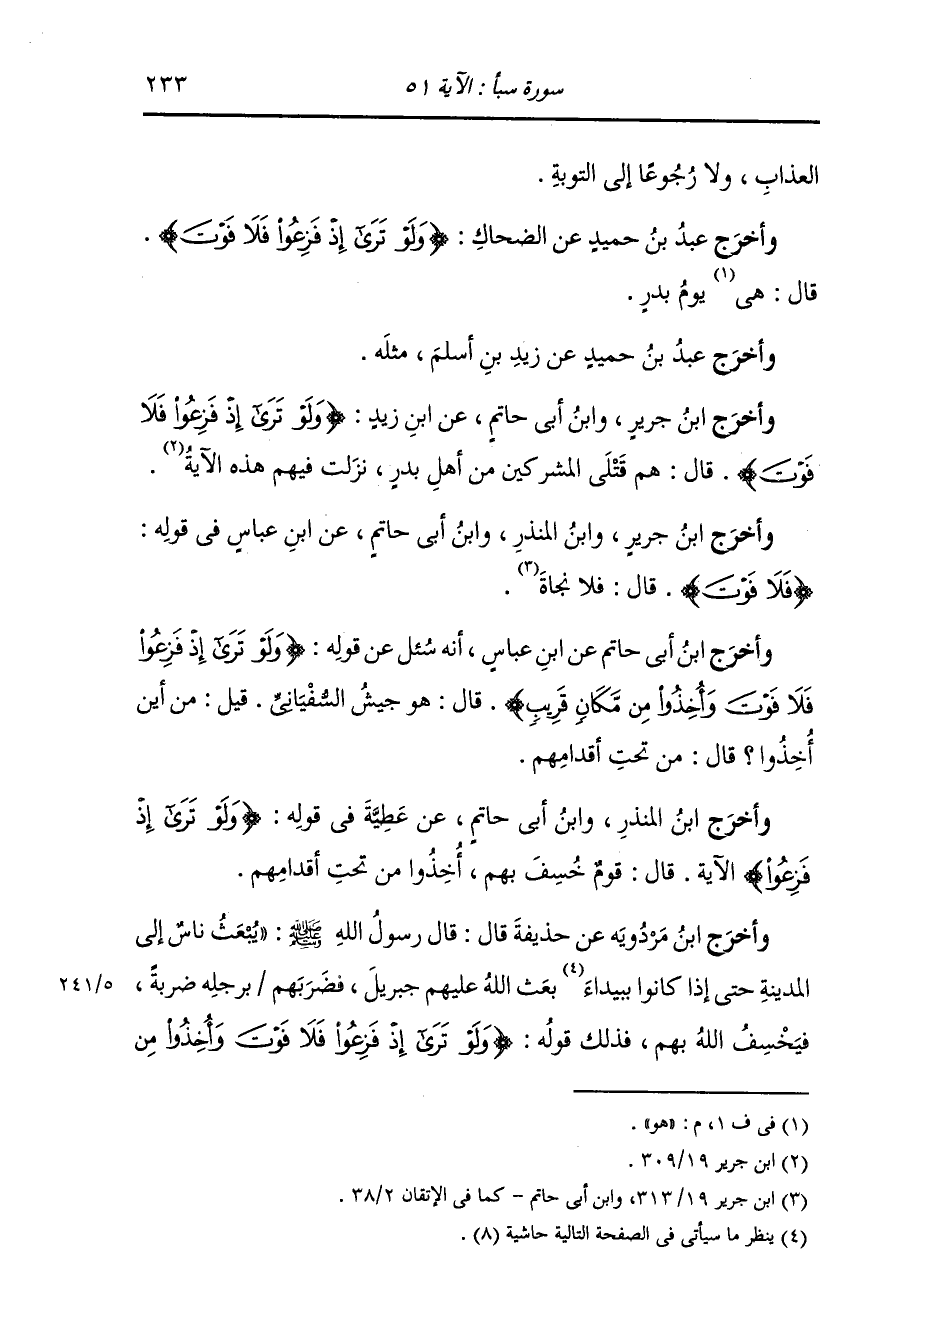 سورة سبأ : الآية ٥١ ٢٣٣
العذابِ ، ولا رُجُوعًا إلى التوبةِ .
وأخرَج عبدُ بنُ حميدٍ عن الضحاكِ : ﴿وَلَوْ تَرَىٰٓ إِذْ فَزِعُوا۟ فَلَا فَوْتَ﴾ .
قال : هى(١) يومُ بدرٍ .
وأخرَج عبدُ بنُ حميدٍ عن زيدِ بنِ أسلمَ ، مثلَه .
وأخرَج ابنُ جريرٍ ، وابنُ أبى حاتمٍ ، عن ابنِ زيدٍ : ﴿وَلَوْ تَرَىٰٓ إِذْ فَزِعُوا۟ فَلَا
فَوْتَ﴾ . قال : هم قَتْلَى المشركين من أهلِ بدرٍ ، نزَلت فيهم هذه الآيةُ(٢) .
وأخرَج ابنُ جريرٍ ، وابنُ المنذرِ ، وابنُ أبى حاتمٍ ، عن ابنِ عباسٍ فى قولِه :
﴿فَلَا فَوْتَ﴾ . قال : فلا نجاةَ(٣) .
وأخرَج ابنُ أبى حاتم عن ابنِ عباسٍ ، أنه سُئل عن قولِه : ﴿وَلَوْ تَرَىٰٓ إِذْ فَزِعُوا۟
فَلَا فَوْتَ وَأُخِذُوا۟ مِن مَّكَانٍ قَرِيبٍ﴾ . قال : هو جيشُ السُّفْيَانىِّ . قيل : من أين
أُخِذُوا ؟ قال : من تحتِ أقدامِهم .
وأخرَج ابنُ المنذرِ ، وابنُ أبى حاتمٍ ، عن عَطِيَّةَ فى قولِه : ﴿وَلَوْ تَرَىٰٓ إِذْ
فَزِعُوا۟﴾ الآية . قال : قومٌ خُسِفَ بهم ، أُخِذُوا من تحتِ أقدامِهم .
وأخرَج ابنُ مَرْدُويَه عن حذيفةَ قال : قال رسولُ اللهِ ﷺ : «يُبْعَثُ ناسٌ إلى
المدينةِ حتى إذا كانوا ببيداءَ(٤) بعَث اللهُ عليهم جبريلَ ، فضَرَبَهم / برجلِه ضربةً ، ٢٤١/٥
فيَخْسِفُ اللهُ بهم ، فذلك قولُه : ﴿وَلَوْ تَرَىٰٓ إِذْ فَزِعُوا۟ فَلَا فَوْتَ وَأُخِذُوا۟ مِن
(١) فى ف ١، م : «هو» .
(٢) ابن جرير ٣٠٩/١٩ .
(٣) ابن جرير ٣١٣/١٩، وابن أبى حاتم - كما فى الإتقان ٣٨/٢ .
(٤) ينظر ما سيأتى فى الصفحة التالية حاشية (٨) .